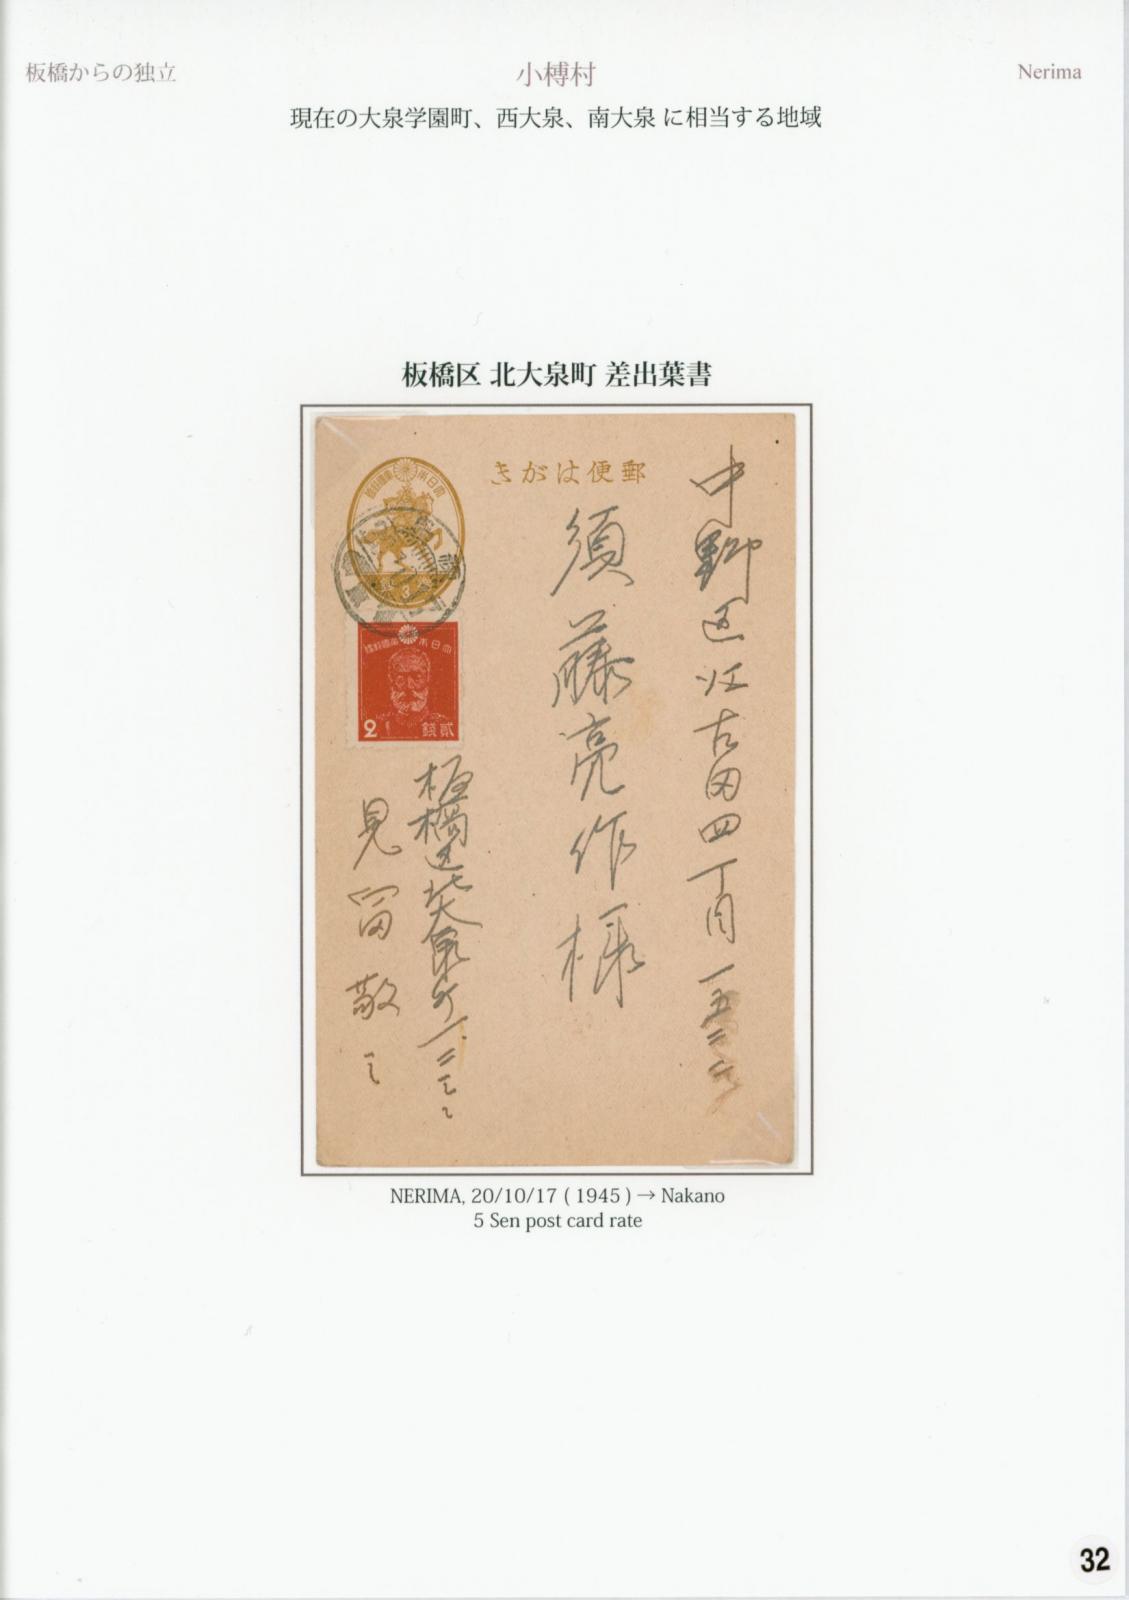 板橋からの独立
小榑村
Nerima
現在の大泉学園町、西大泉、南大泉 に相当する地域
板橋区 北大泉町 差出葉書
きがは便郵
中野区江古田四丁目一五二
須藤亮作様
大日本帝國郵便
大日本帝國郵便
2 錢貳
板橋区北大泉町一二
見富敬
NERIMA, 20/10/17 ( 1945 ) → Nakano
5 Sen post card rate
32